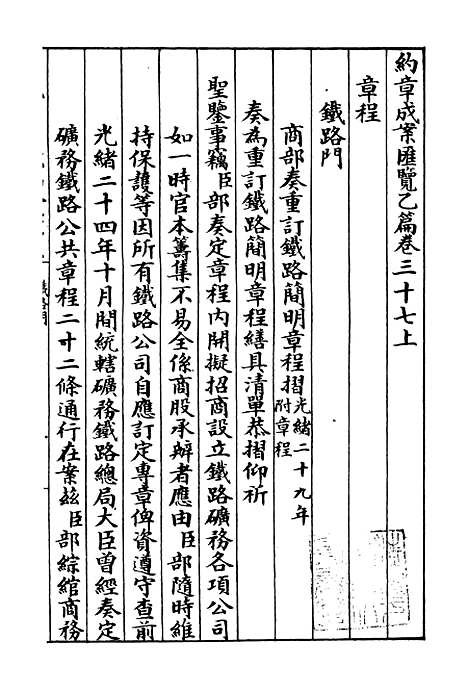 約章成案匯覽乙篇卷三十七上
章程
鐵路門
商部奏重訂鐵路簡明章程摺光緒二十九年附章程
奏為重訂鐵路簡明章程繕具清單恭摺仰祈
聖鑒事竊臣部奏定章程內開擬招商設立鐵路礦務各項公司
如一時官本籌集不易全係商股承辦者應由臣部隨時維
持保護等因所有鐵路公司自應訂定專章俾資遵守查前
光緒二十四年十月間統轄礦務鐵路總局大臣曾經奏定
礦務鐵路公共章程二十二條通行在案茲臣部綜綰商務